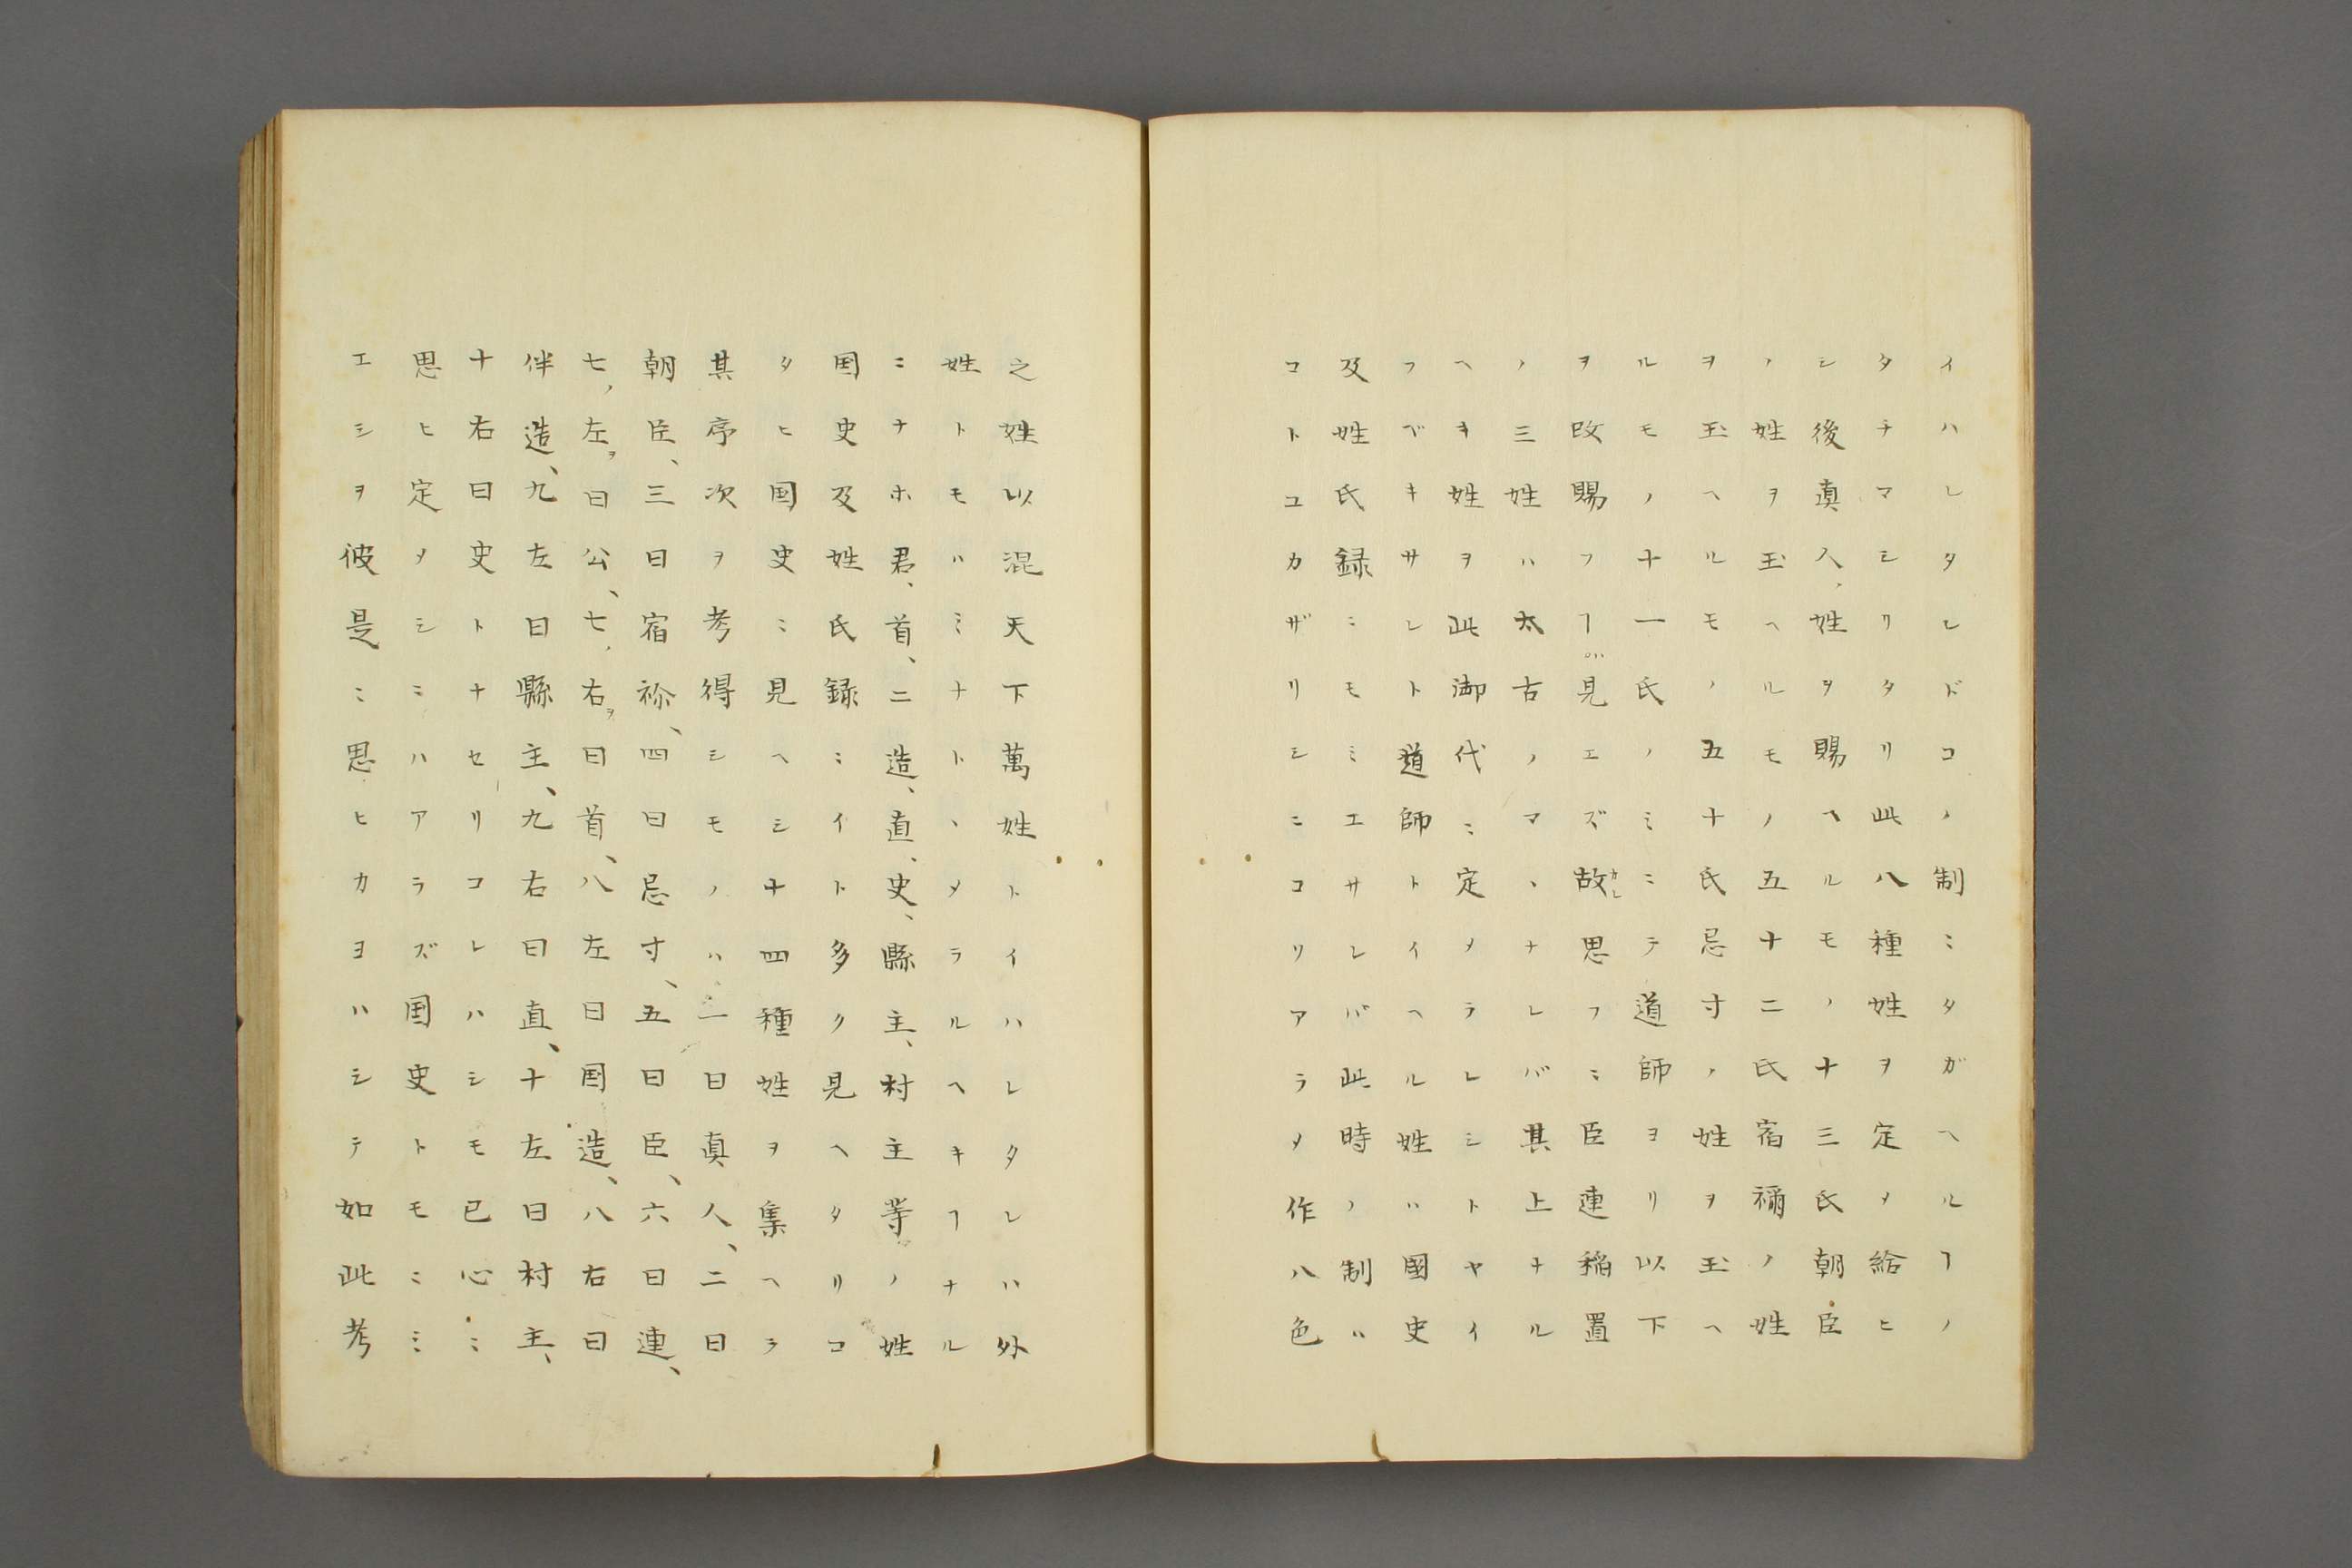 イハレタレドコノ制ミタガヘルヿノ
タチマシリタリ此八種姓ヲ定メ給ヒ
シ後真人ノ姓ヲ賜ヘルモノ十三氏朝臣
ノ姓ヲ玉ヘルモノ五十二氏宿禰ノ姓
ヲ玉ヘルモノ五十氏忌寸ノ姓ヲ玉ヘ
ルモノ十一氏ノミミテ道師ヨリ以下
ヲ改賜フヿハ見エズ故カレ思フミ臣連稲置
ノ三姓ハ太古ノマヽナレバ其上ナル
ヘキ姓ヲ此御代ミ定メラレシトヤイ
フベキサレト道師トイヘル姓ハ國史
及姓氏録ミモミエサレバ此時ノ制ハ
コトユカザリシニコリアラメ作八色
之姓以混天下萬姓トイハレタレハ外
姓トモハミナトヽメラルヘキヿナル
ミナホ君、首、二造、直、史、縣主、村主等ノ姓
国史及姓氏録ミイト多ク見ヘタリコ
タヒ国史ミ見ヘシ十四種姓ヲ集ヘラ
其序次ヲ考得シモノハ一曰真人、二曰
朝臣、三曰宿祢、四曰忌寸、五曰臣、六曰連、
七ノ左ヲ曰公、七ノ右ヲ曰首、八左曰国造、八右曰
伴造、九左曰縣主、九右曰直、十左曰村主、
十右曰史トナセリコレハシモ已心ミ
思ヒ定メシミハアラズ国史トモニミ
エシヲ彼是ミ思ヒカヨハシテ如此考